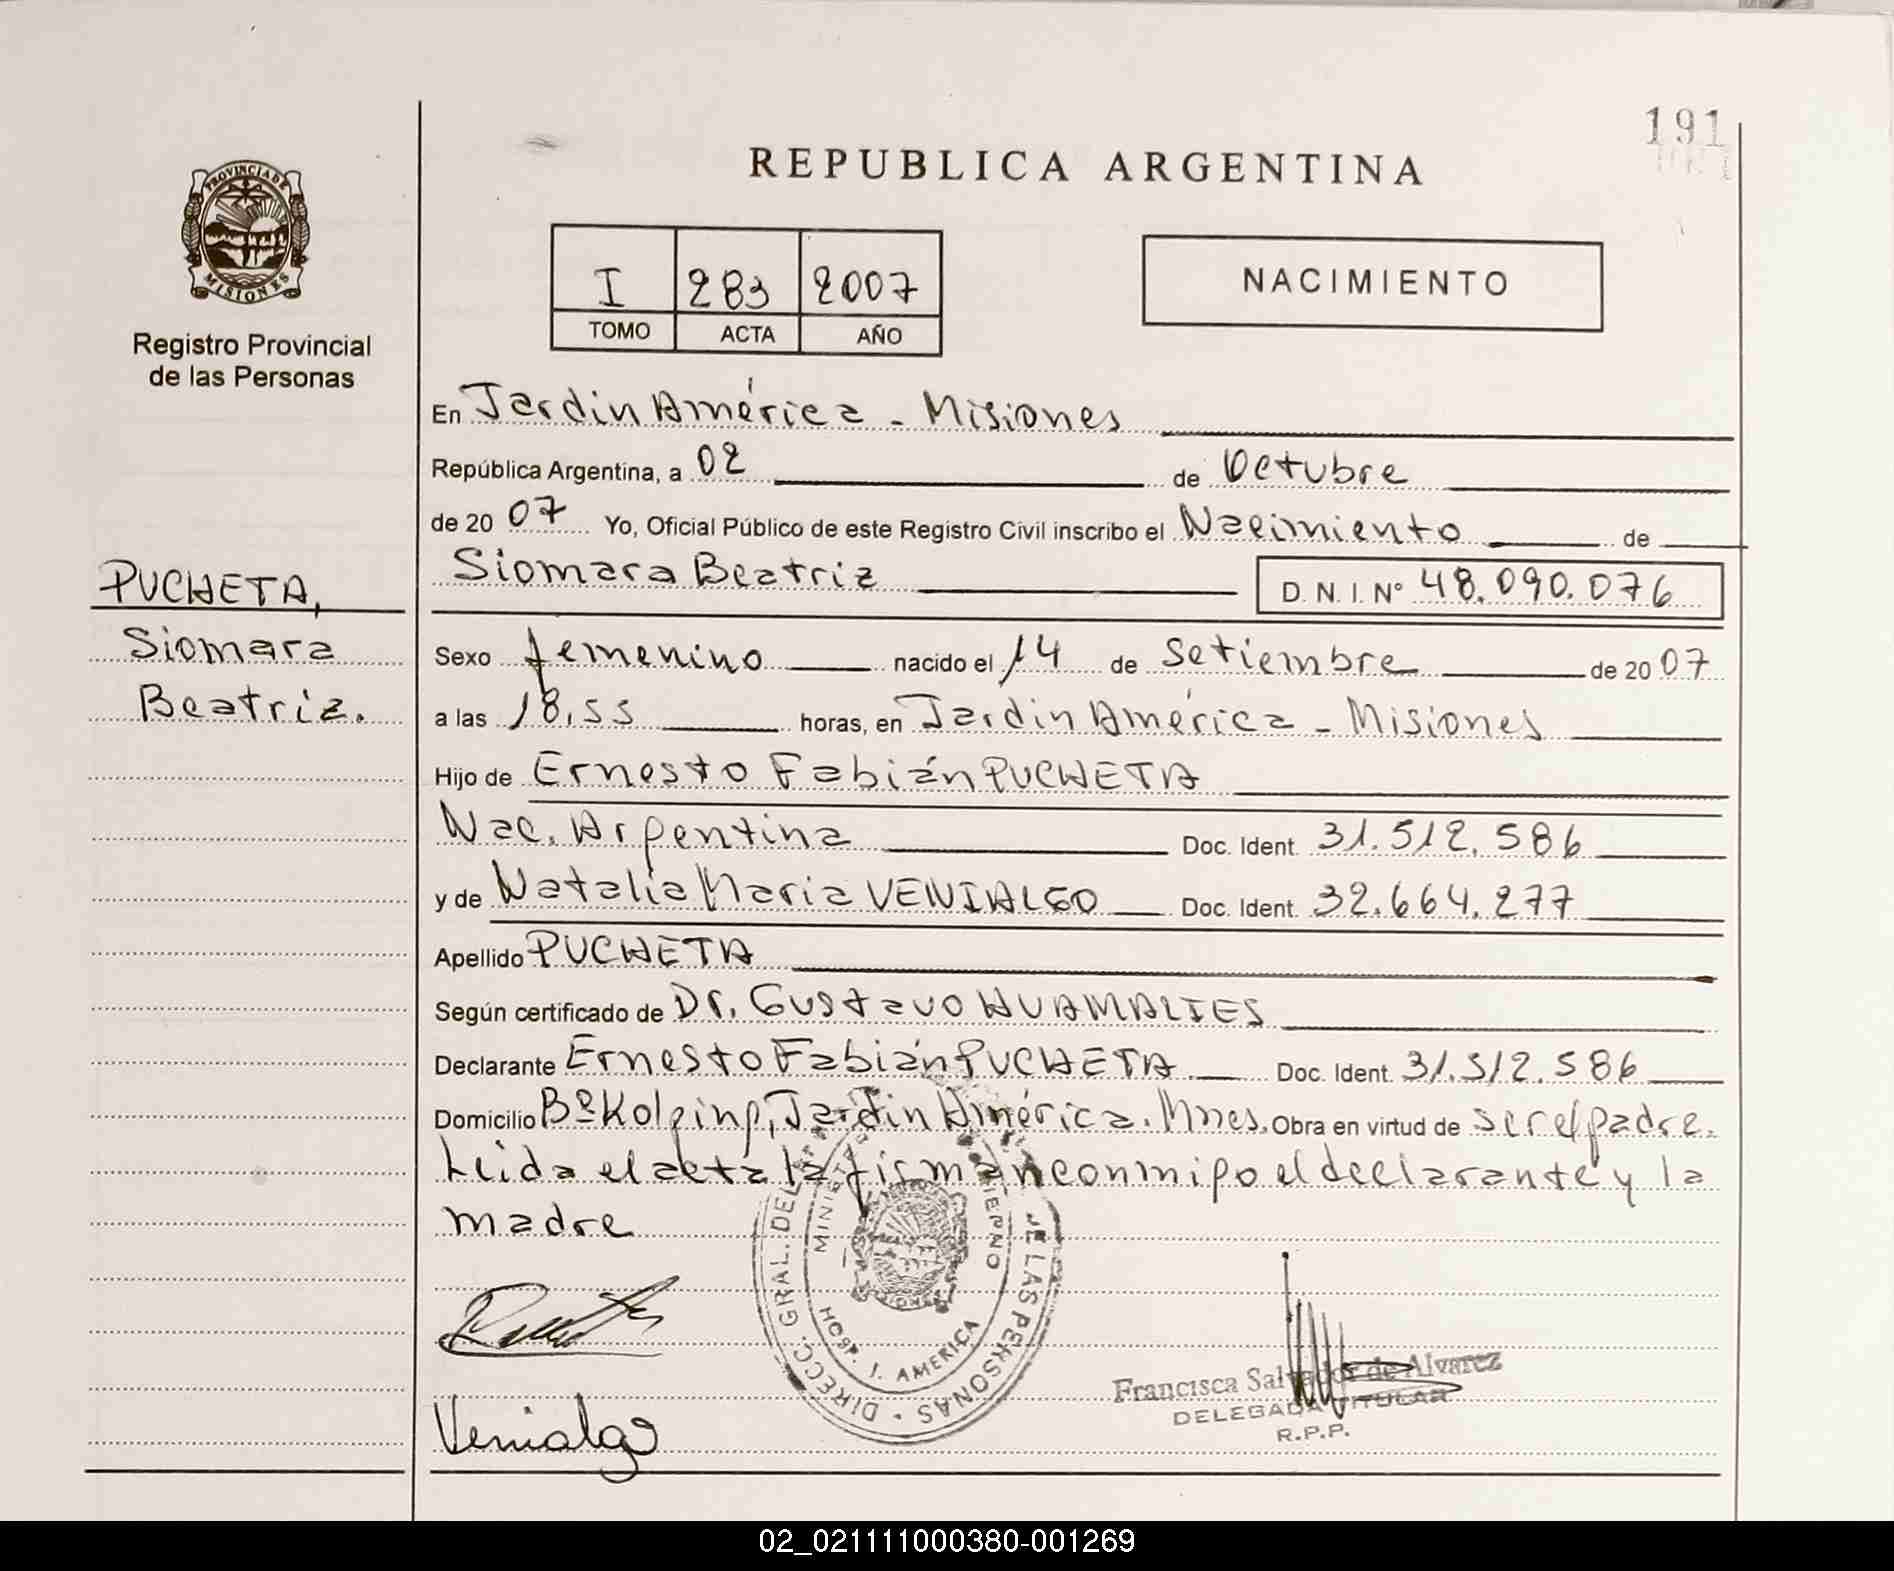 191
REPUBLICA ARGENTINA
PROVINCIA DE
MISIONES
Registro Provincial
de las Personas
I 283 2007
TOMO ACTA AÑO
NACIMIENTO
En Jardin América - Misiones
República Argentina, a 02 de Octubre
de 20 07 Yo, Oficial Público de este Registro Civil inscribo el Nacimiento de
Siomara Beatriz D. N. I. Nº 48.090.076
PUCHETA,
Siomara
Beatriz.
Sexo femenino nacido el 14 de Setiembre de 20 07
a las 18,55 horas, en Jardin América - Misiones
Hijo de Ernesto Fabián PUCHETA
Nac. Argentina Doc. Ident. 31.512.586
y de Natalia Maria VENIALGO Doc. Ident. 32.664.277
Apellido PUCHETA
Según certificado de Dr. Gustavo HUAMALIES
Declarante Ernesto Fabián PUCHETA. Doc. Ident. 31.512.586
Domicilio Bº Kolping, Jardin América. Mnes. Obra en virtud de ser el padre.
Leida el acta la firman conmigo el declarante y la
madre
DIRECC. GRAL. DEL DE LAS PERSONAS
HOSP. J. AMERICA
MISIONES
Venialgo
Francisca Salvador de Alvarez
DELEGADA TITULAR
R.P.P.
02_021111000380-001269